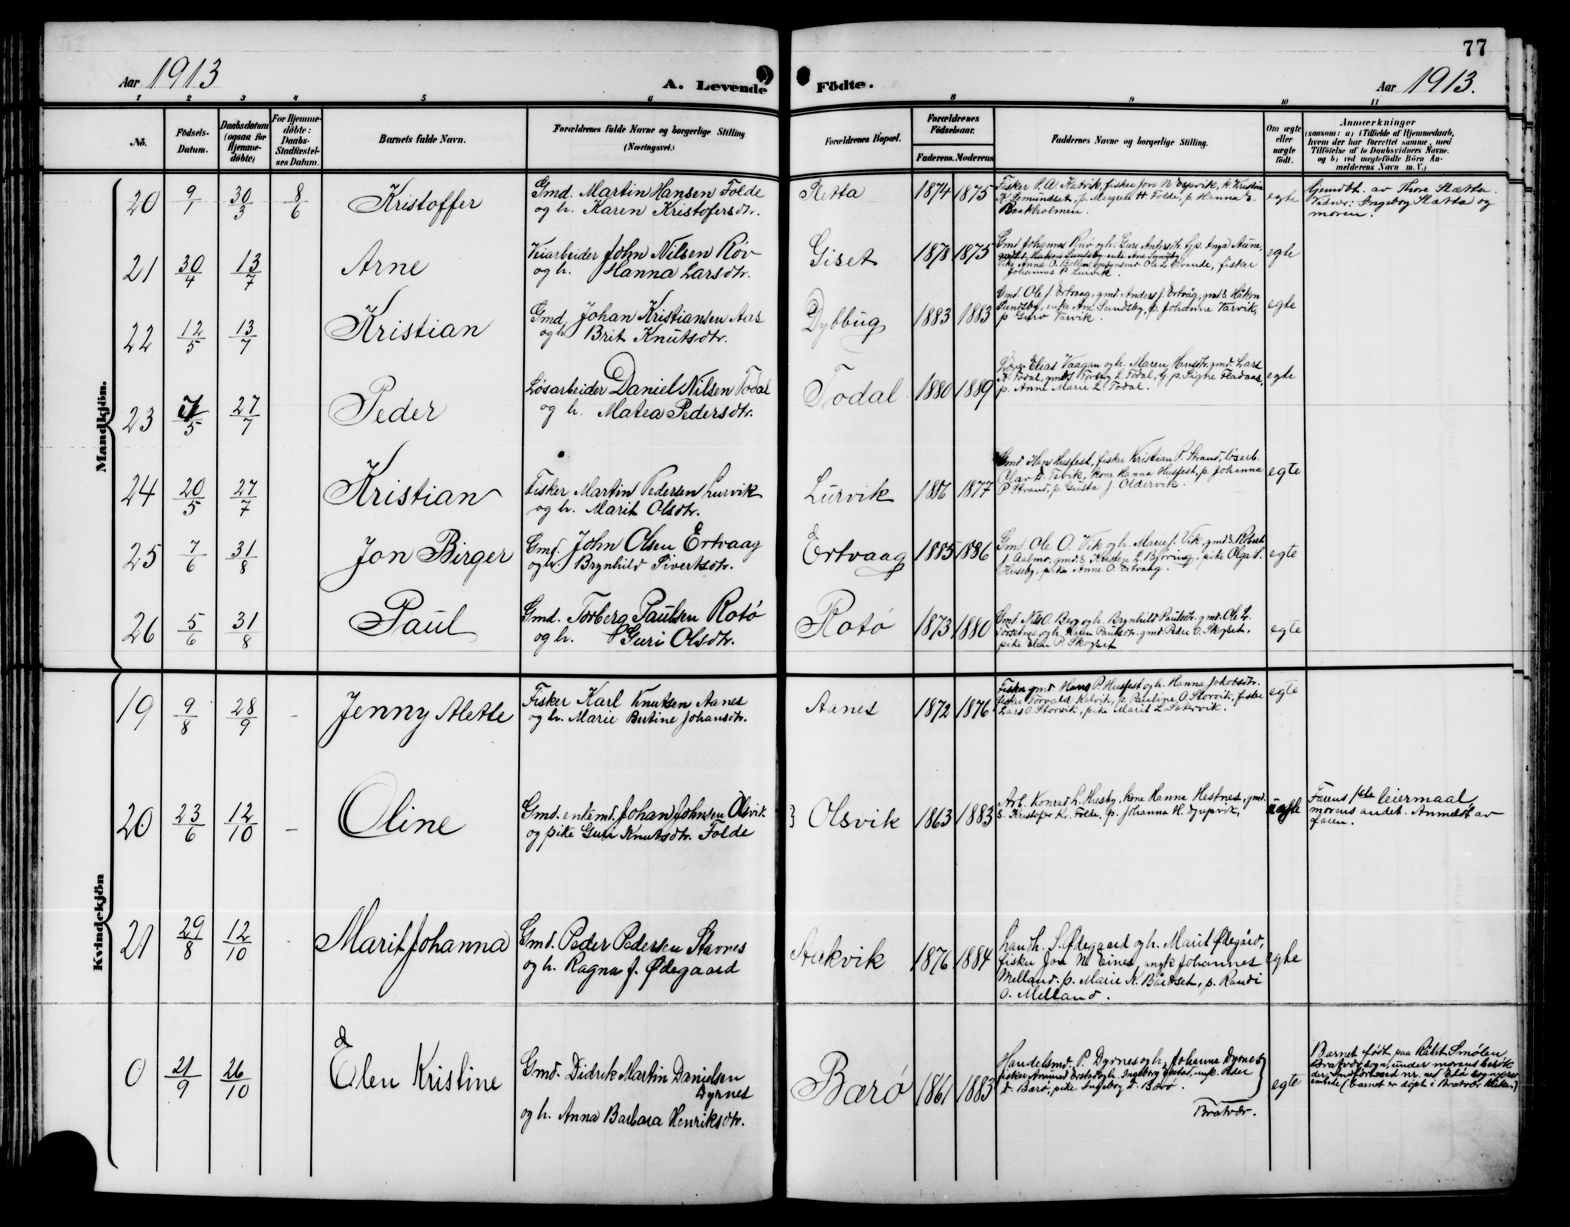 77
Aar 1913
A. Levende Födte.
Aar 1913.
1 2 3 4 5 6 8 9 10 11
No.
Födsels-
Datum.
Daabsdatum
(ogsaa for
Hjemme-
döbte)
For Hjemme-
döbte:
Daabs-
Stadfæstel-
ses Datum.
Barnets fulde Navn.
Forældrenes fulde Navne og borgerlige Stilling
(Næringsvei.)
Forældrenes Bopæl.
Forældrenes
Födselsaar.
Faderens. Moderens
Faddernes Navne og borgerlige Stilling.
Om ægte
eller
uægte
födt.
Anmærkninger
(saasom: a) i Tilfælde af Hjemmedaab,
hvem der har forrettet samme, med
Tilföielse af to Daabsvidners Navne.
og b) ved uægtefödte Börn An-
melderens Navn m. V.)
Mandkjön.
20 9/1 30/3 8/6 Kristoffer
Gmd. Martin Hansen Folde
og h. Karen Kristofersdtr.
1874 1875
Fisker P. A. Kjatvik, fisker Jon N. Espvik, k. Kristine
p. Margrete H. Folde, p. Hanna
egte
Gjendbt. av Thore Slatta.
Vidner: Ingeborg Slatta og
moren.
21 30/4 13/7 Arne
John Nilsen Röv
og h. Hanna Larsdtr.
Giset 1878 1875
egte
22 12/5 13/7 Kristian
Gmd. Johan Kristiansen Aas
og h Brit Knutsdtr.
Dybbug 1883 1883
Gmd. Ole J. Ertvaag, gmd Anders J. Ertvåg, gmds. Håkon
Sundsby, enke Ane Sundsby, p. Johanne Vaevik,
p Guro Vaevik.
egte
23 /5 27/7 Peder
Løsarbeider Daniel Nilsen Todal
og h. Matea Pedersdtr.
Todal 1880 1889
Elias Vaagan og h. Maren
p. Anne Marie L. Todal.
egte
24 20/5 27/7 Kristian
Fisker Martin Pedersen Lurvik
og h. Marit Olsdtr.
Lurvik 1877
Gmd Hans Husfest, fisker Kristian P. Strand, løsarb.
Olav D. Tevik, kone Hanna Husfest, p. Johanna
P. Strand, p. Gusta J. Oldervik.
egte
25 7/6 31/8 Jon Birger
Gmd. John Olsen Ertvaag
og h. Brynhild Sivertsdtr.
Ertvaag 1885 1886
Gmd. Ole O. Vik og h. Maren J. Vik, gmds. Robert
pike Olga S.
Huseby, pike Anne O. Ertvaag.
egte
26 5/6 31/8 Paul
Gmd. Torberg Paulsen Rotø
og h. Guri Olsdtr.
Rotø 1873 1880
Gmd Nils O. Berg og h. Brynhild Paulsdtr. gmd. Ole L.
og h. Karen Paulsdtr. gmd Peder O. Skogset,
pike Elen P. Skogset
egte
Kvindekjön
19 9/8 28/9 - Jenny Alette
Fisker Karl Knutsen Aanes
og h. Marie Bertine Johansdtr.
Aanes 1872 1876
Fisker gmd Hans P. Husfest og h. Hanna Jakobsdtr.
fisker Torvald Kalvik, p. Pauline A. Storvik, fisker
Lars O. Storvik, pike Marit L. Setervik.
egte
20 23/6 12/10 - Oline
Gmd. enkemd. Johan Johnsen Olsvik
og pike Guri Knutsdtr. Folde
Olsvik 1863 1883
Arb. Konrad L. Huseby, kone Hanna Hestnes, gmd.
s. Kristofer K. Folde, p. Johanna H. Djupvik,
uegte
Farens 1ste leiermaal,
morens andet. Anmeldt av
faren.
21 29/8 12/10 - Marit Johanna
Gmd. Peder Pedersen Stavnes
og h. Ragna J. Ødegaard
Aakvik 1876 1884
Landh. S. Ødegaard og h. Marit Ødegård,
fisker Jon M. Eines, ungk Johannes
Melland. p. Marie K. Bårdset, p. Randi
O. Melland.
egte
0 21/9 26/10 Elen Kristine
Gmd. Didrik Martin Danielsen
Dyrnes
og h. Anna Barbara Henriksdtr.
Barø 1861 1883
Handelsmd. P. Dyrnes og h. Johanna Dyrnes
D. Barø, pike Ingeborg D. Barø.
Bratvær.
egte
Barnet født paa Smølen,
Bratvær sogn, under morens besök
der.
(Barnet er døpt i Bratvær Kirke.)